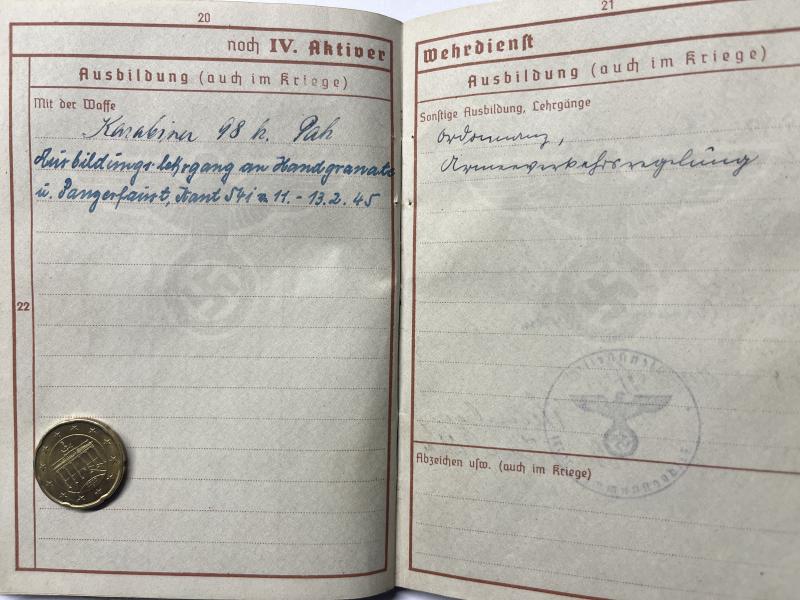 20
noch IV. Aktiver
Ausbildung (auch im Kriege)
Mit der Waffe
Karabiner 98 k. Pak
Ausbildungs-lehrgang an Handgranate
u. Panzerfaust, 11.-13.2.45
22
21
Wehrdienst
Ausbildung (auch im Kriege)
Sonstige Ausbildung, Lehrgänge
Ordonnanz,
Armeeverkehrsregelung
Abzeichen usw. (auch im Kriege)